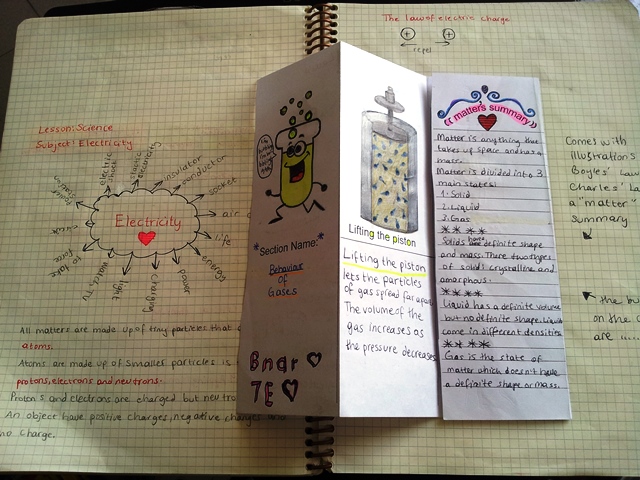 Lesson: Science
Subject: Electricity
electric shock
static electricity
insulator
conductor
socket
air
life
energy
power
charging
light
watch TV
circuit
Electricity
All matters are made up of tiny particles that
atoms.
Atoms are made up of smaller particles
protons, electrons and neutrons.
Protons and electrons are charged but
An object have positive charges, negative charges
no charge.
*Section Name:*
Behavior
Of
Gases
Bnar
7E
Lifting the piston
Lifting the piston
lets the particles
of gas spread far
The volume of the
gas increases as
the pressure decreases
The law of electric charge
+ +
repel
matter's summary
Matter is anything that
takes up space and has a
mass.
Matter is divided into 3
main states:
1. Solid
2. Liquid
3. Gas
****
Solids have definite shape
and mass. There two types
of solid: crystalline and
amorphous.
****
Liquid has a definite volume
but no definite shape. Liquid
come in different densities
****
Gas is the state of
matter which doesn't have
a definite shape or mass.
Comes with
illustrations
Boyles'
Charles'
a "matter"
summary
the
on the
are .....